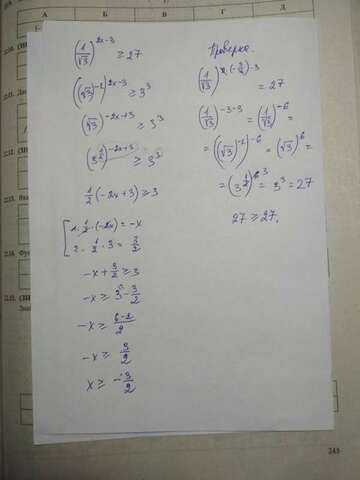 (1/√3)^(2x-3) ≥ 27
((√3)^(-1))^(2x-3) ≥ 3^3
(√3)^(-2x+3) ≥ 3^3
(3^(1/2))^(-2x+3) ≥ 3^3
1/2 (-2x+3) ≥ 3
1. 1/2 · (-2x) = -x
2. 1/2 · 3 = 3/2
-x + 3/2 ≥ 3
-x ≥ 3 - 3/2
-x ≥ (6-3)/2
-x ≥ 3/2
x ≥ -3/2
Проверка.
(1/√3)^(2·(-3/2)-3) = 27
(1/√3)^(-3-3) = (1/√3)^(-6) =
= ((√3)^(-1))^(-6) = (√3)^6 =
= (3^(1/2))^6 = 3^3 = 27
27 ≥ 27.
А
Б
В
Г
Д
245